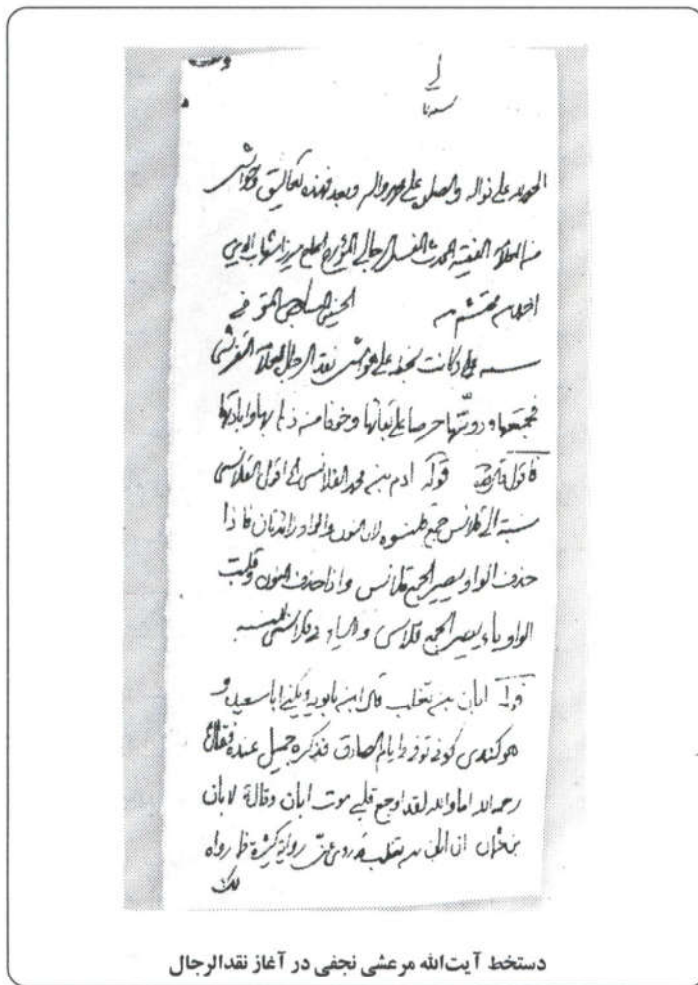 الحمد لله على نواله والصلوة على محمد وآله وبعد فهذه تعاليق وحواشى
من العلامة الفقيه المحدث الرجالي المؤرخ ميرزا شهاب الدين
الحسينى المتوفى
سنه كانت بخطه على هوامش نقد الرجال للعلامة التفرشى
فجمعتها ودونتها حرصا على بقائها وخوفا من ذهابها وابادتها
فاقول قوله ادم بن محمد القلانسى اقول القلانسى
نسبة الى قلانس جمع قلنسوه لان النون والواو زائدتان فاذا
حذف الواو يصير الجمع قلانس واذا حذف النون وقلبت
الواو ياء يصير الجمع قلاسى
قوله ابان بن تغلب قال ابن بابويه ويكنى ابا سعيد و
هو كندى كوفى توفى فى ايام الصادق فذكره جميل عنده فقال
رحمه الله اما والله لقد اوجع قلبى موت ابان وقال لابان
بن عثمان ان ابان بن تغلب قد روى عنى رواية كثيرة فما رواه
لك
دستخط آیت‌الله مرعشی نجفی در آغاز نقدالرجال